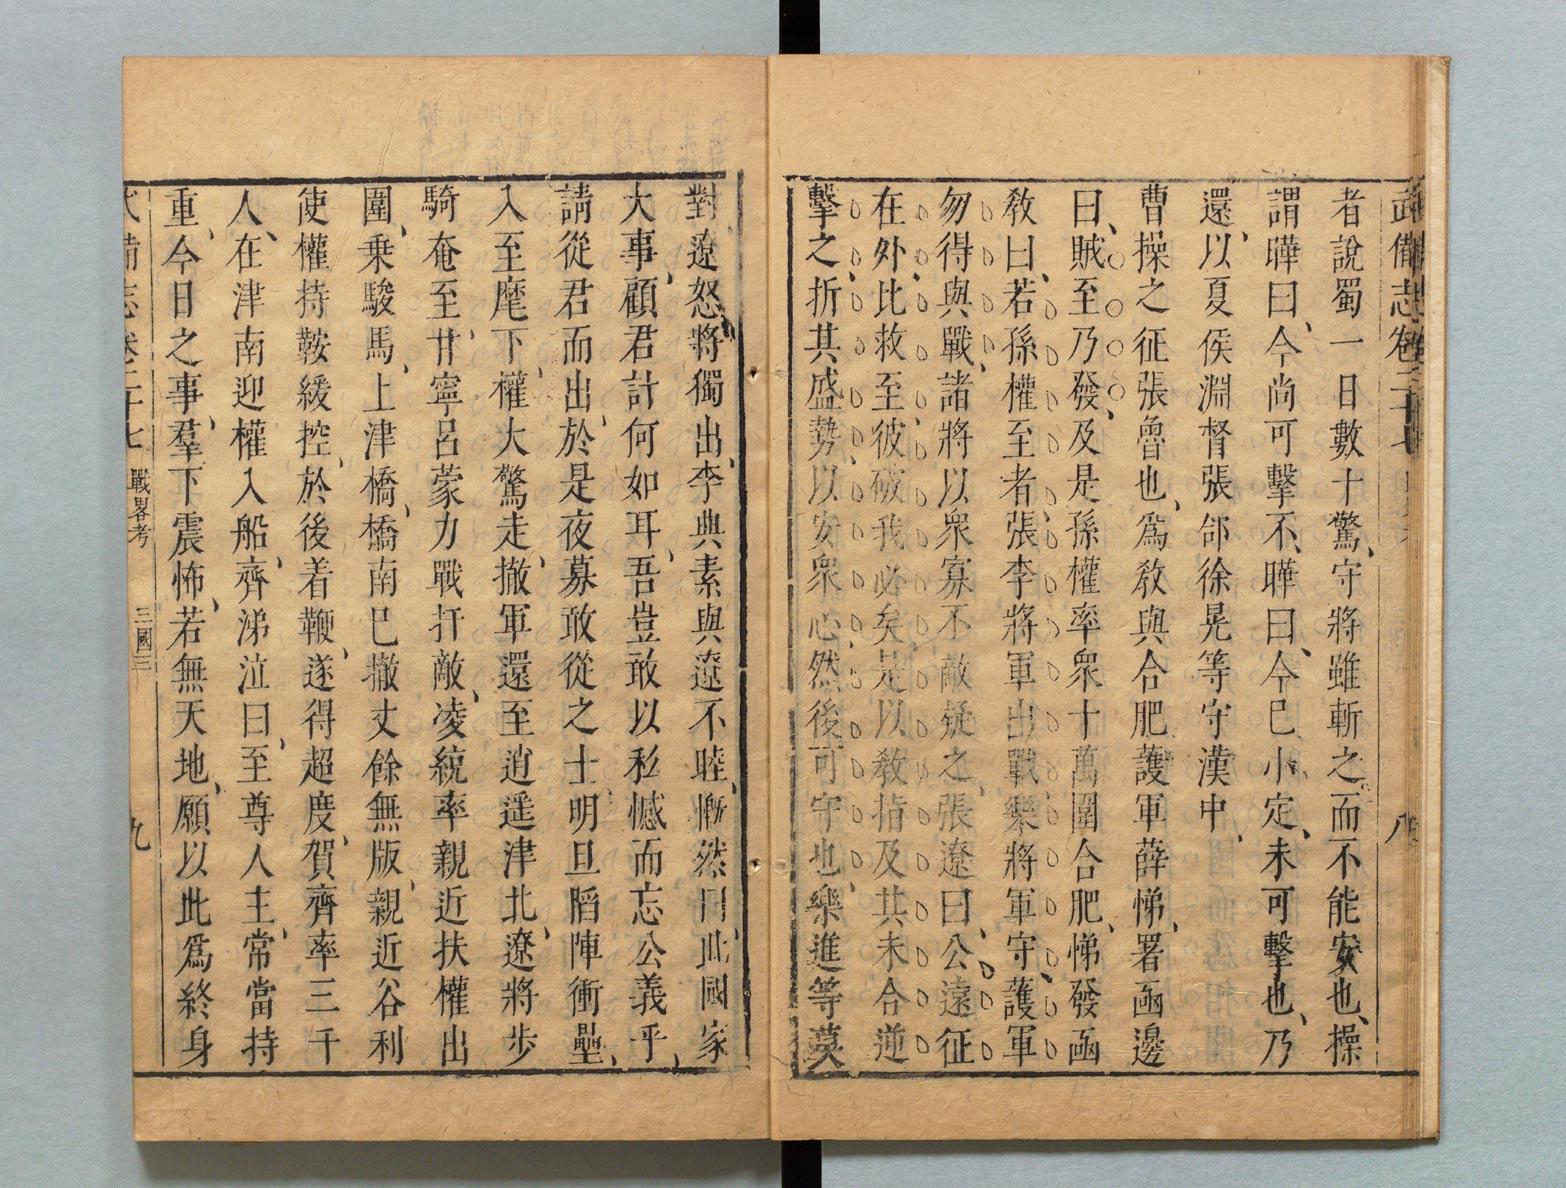 武備志卷二十七
八
者說蜀一日數十驚、守將雖斬之而不能安也、操
謂曄曰、今尚可擊不、曄曰、今已小定、未可擊也、乃
還、以夏侯淵督張郃徐晃等守漢中、
曹操之征張魯也、爲敎與合肥護軍薛悌、署函邊
曰、賊至乃發、及是孫權率衆十萬圍合肥、悌發函
敎曰、若孫權至者、張李將軍出戰、樂將軍守、護軍
勿得與戰、諸將以衆寡不敵疑之、張遼曰、公遠征
在外、比救至、彼破我必矣、是以敎指及其未合逆
擊之、折其盛勢、以安衆心、然後可守也、樂進等莫
對、遼怒、將獨出、李典素與遼不睦、慨然曰、此國家
大事、顧君計何如耳、吾豈敢以私憾而忘公義乎、
請從君而出、於是夜募敢從之士、明旦陷陣衝壘、
入至麾下、權大驚走、撤軍還至逍遥津北、遼將步
騎奄至、甘寧呂蒙力戰扞敵、凌統率親近扶權出
圍、乗駿馬、上津橋、橋南已撤丈餘無版、親近谷利
使權持鞍緩控、於後着鞭、遂得超度、賀齊率三千
人、在津南迎權入船、齊涕泣曰、至尊人主、常當持
重、今日之事、羣下震怖、若無天地、願以此爲終身
武備志卷二十七 戰畧考 三國三
九